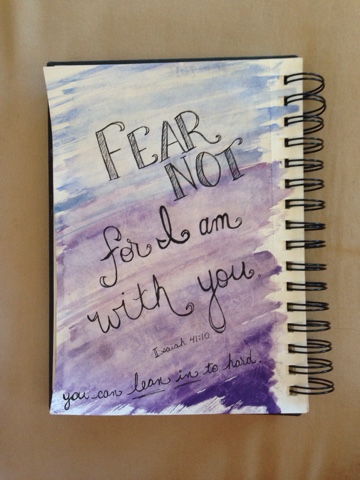 FEAR
NOT
for I am
with you.
Isaiah 41:10
you can lean in to hard.